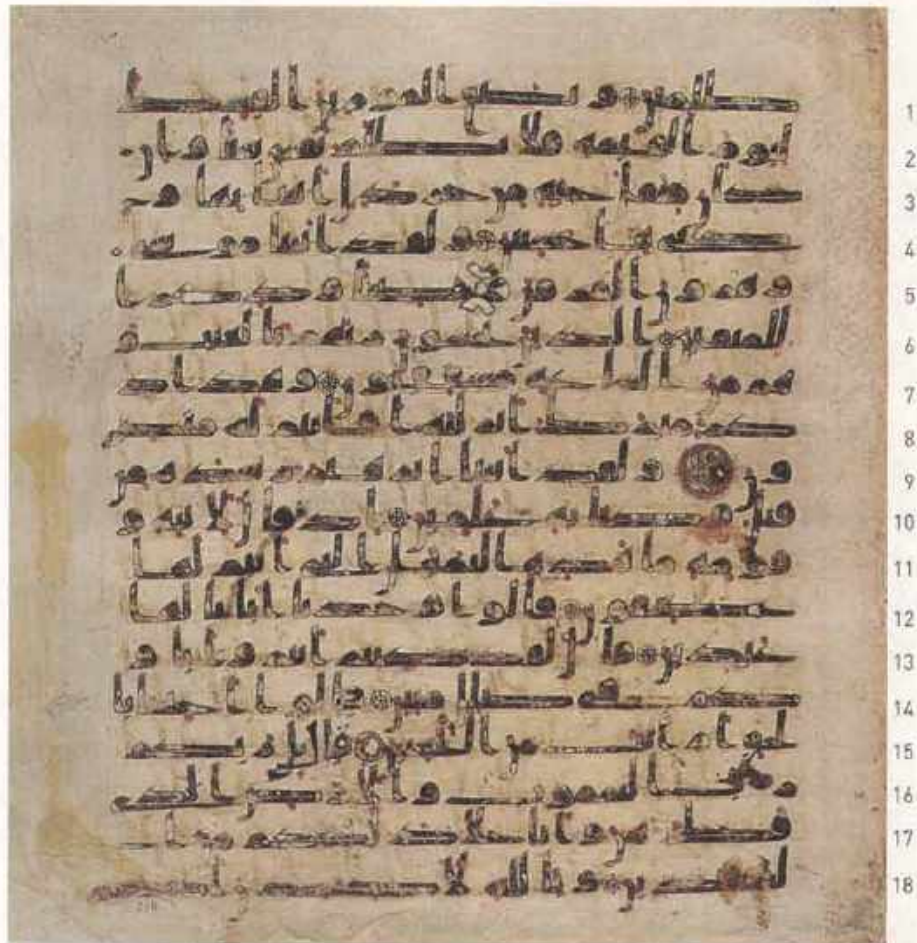 ظلمين ونضع الموزين القسط 1
ليوم القيمة فلا تظلم نفس شيا وان 2
كان مثقال حبة من خردل اتينا بها وك 3
فى بنا حسبين ولقد اتينا موسى 4
وهرون الفرقن وضيا وذكرا 5
للمتقين الذين يخشون ربهم بالغيب و 6
هم من الساعة مشفقون وهذا ذ 7
كر مبرك انزلنه افانتم له منكر 8
ون ولقد اتينا ابرهيم رشده من 9
قبل وكنا به علمين اذ قال لابيه و 10
قومه ما هذه التماثيل التى انتم لها 11
عكفون قالوا وجدنا ابانا لها 12
عبدين قال لقد كنتم انتم واباو 13
كم فى ضلل مبين قالوا اجئتنا 14
بالحق ام انت من اللعبين قال بل ربكم 15
رب السموت والارض الذى 16
فطرهن وانا على ذلكم من ا 17
لشهدين وتالله لاكيدن اصنمكم 18